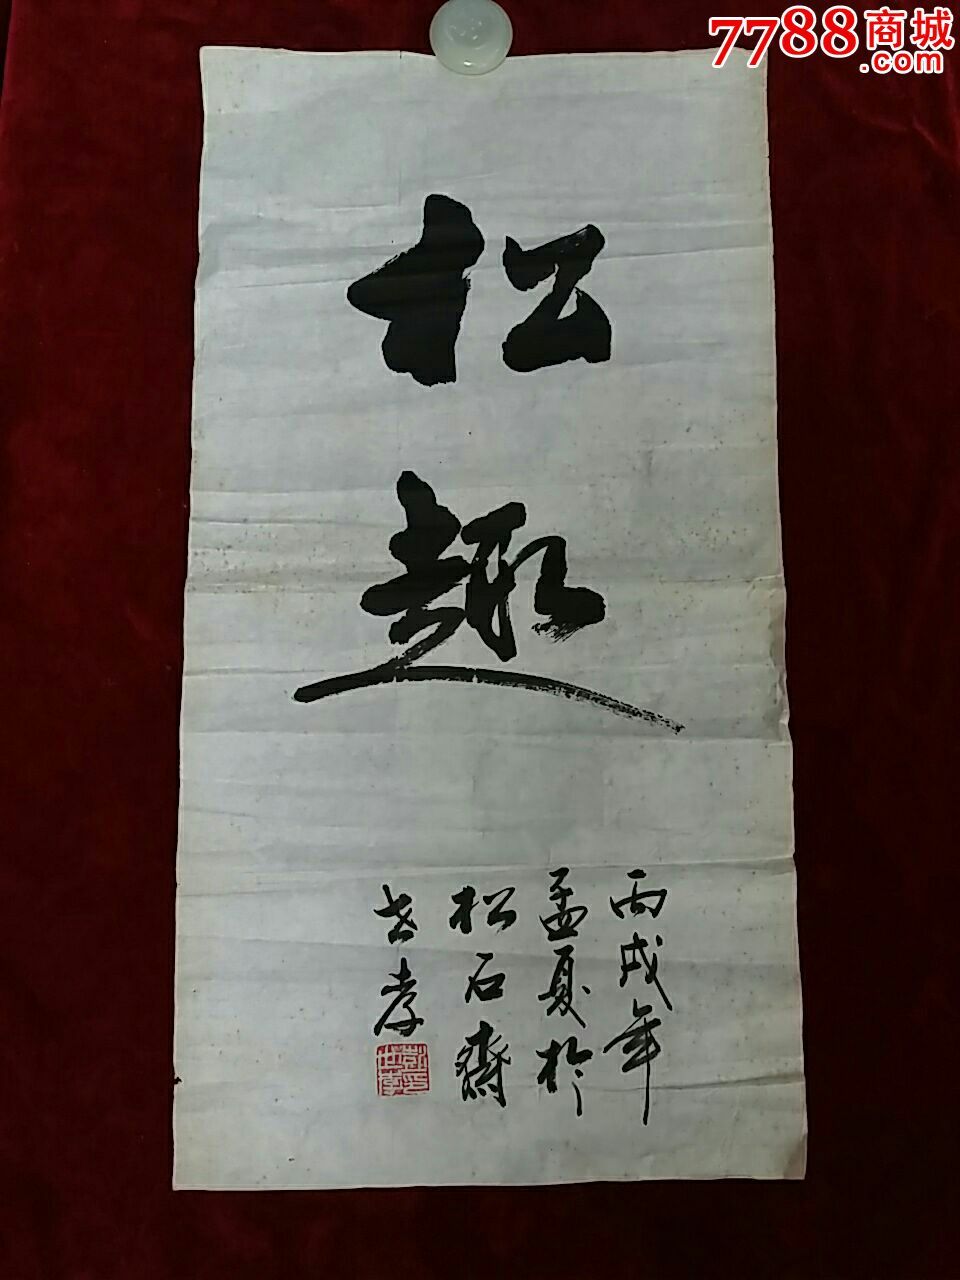 7788商城
.com
松
趣
丙戌年
孟夏於
松石齋
世孝